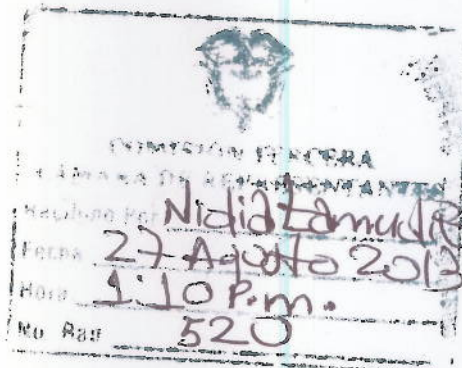 COMISION TERCERA
CAMARA DE REPRESENTANTES
Recibido Por Nidia
Fecha 27 Agosto 2013
Hora 1:10 P.m.
No Rad 520